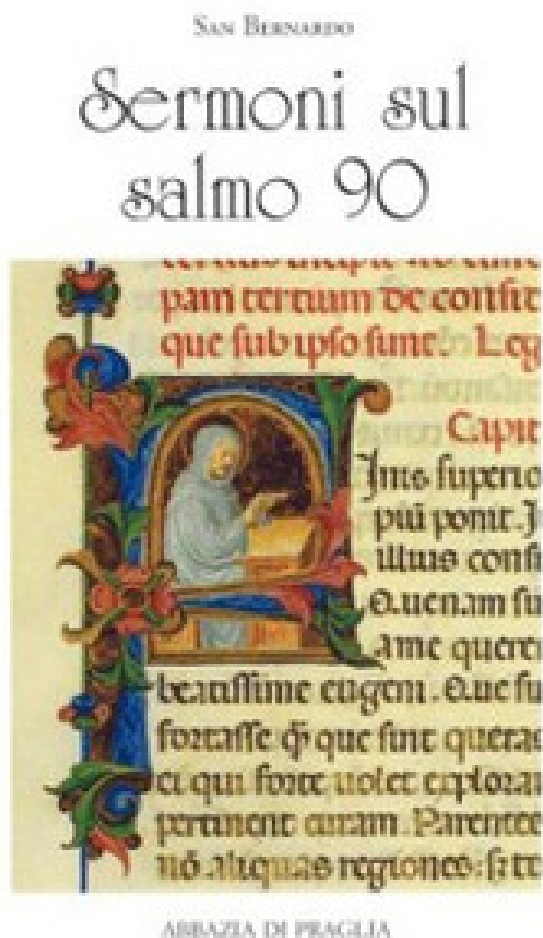 SAN BERNARDO
Sermoni sul
salmo 90
pam tertium de consit
que sub ipso sunt. Leg
Capit
superio
ponit. J
illius consi
Q.uenam su
ame quere
beatissime eugeni. Q.ue su
fortasse q̃ que sint querac
ci qui forte uolet explorar
pertinent curam. Parentee
nō aliquas regiones: si te
ABBAZIA DI PRAGLIA